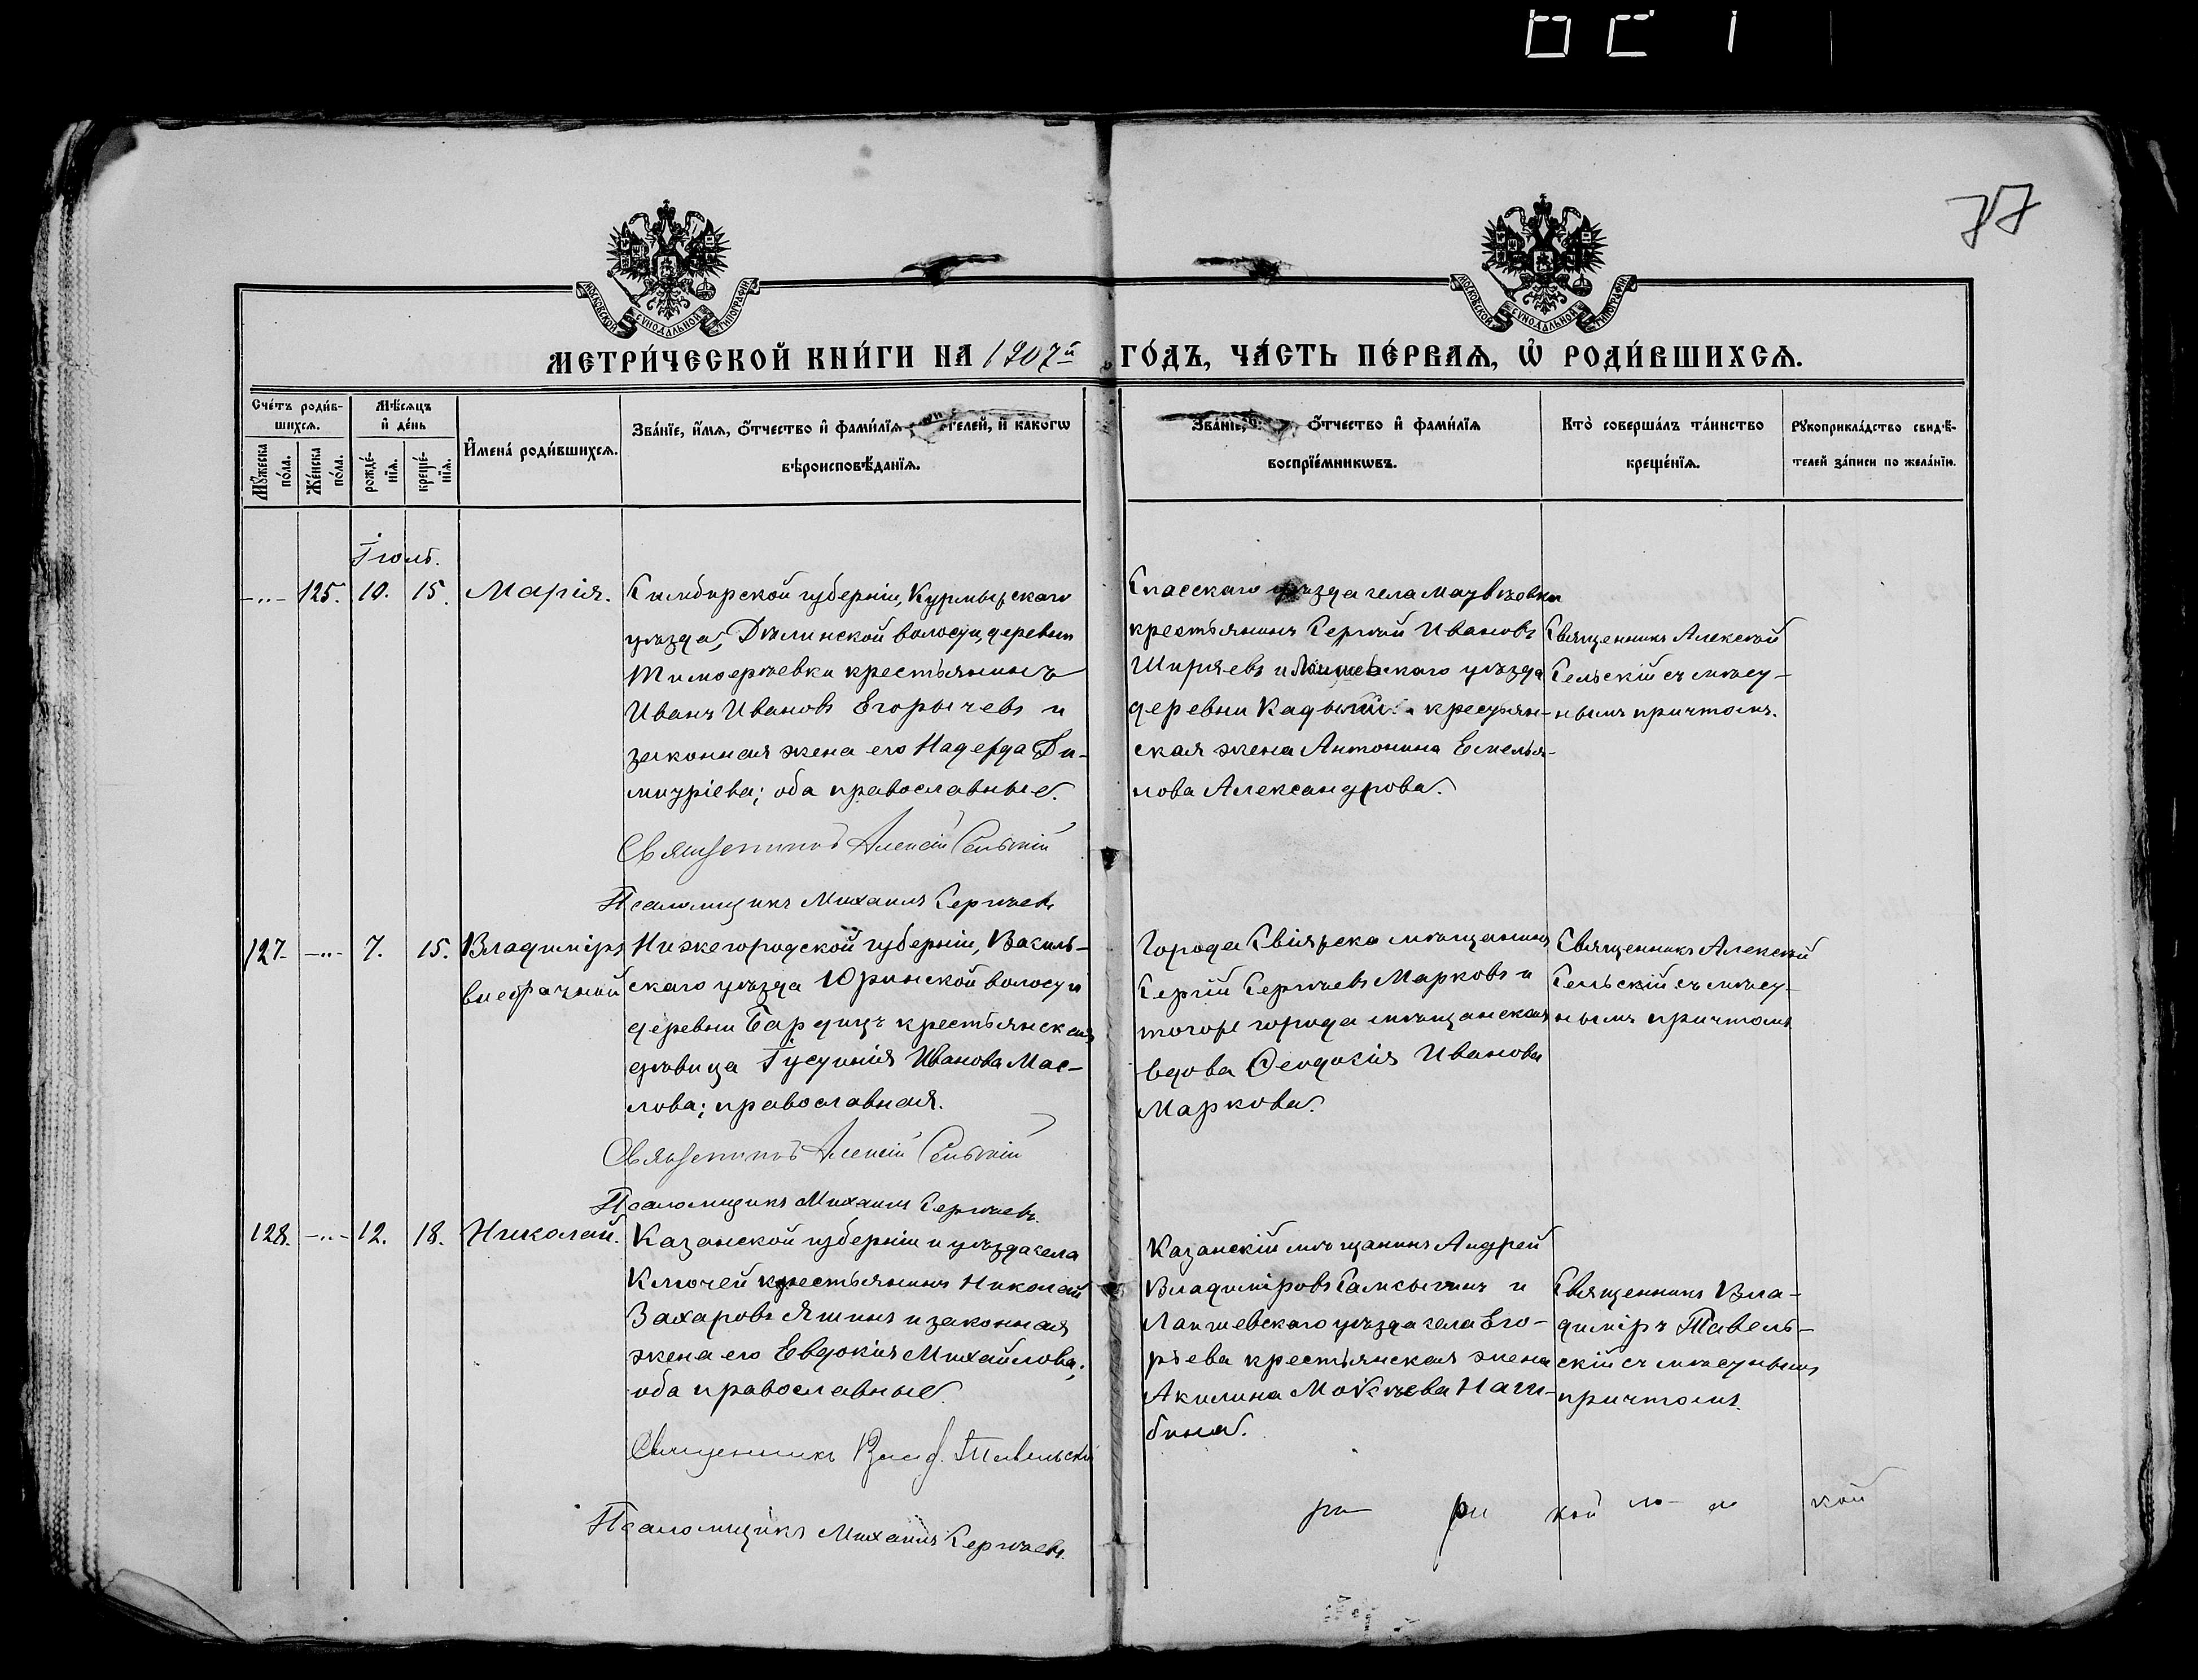 77
МОСКОВСКОЙ СѴНОДАЛЬНОЙ ТИПОГРАФІИ
МОСКОВСКОЙ СѴНОДАЛЬНОЙ ТИПОГРАФІИ
МЕТРИ́ЧЕСКОЙ КНИ́ГИ НА 1907й ГО́ДЪ, ЧА́СТЬ ПЕ́РВАѦ, Ѡ҆ РОДИ́ВШИХСѦ.
Сче́тъ роди́в-
шихсѧ.
Мꙋ́жеска по́ла.
Же́нска по́ла.
Мѣ́сѧцъ
и҆ де́нь
рожде́-
нїѧ.
креще́-
нїѧ.
И҆мена̀ роди́вшихсѧ.
Зва́нїе, и҆́мѧ, ѻ҆́тчество и҆ фами́лїѧ
телей, и҆ како́гѡ
вѣроисповѣ́данїѧ.
Зва́нїе,
ѻ҆́тчество и҆ фами́лїѧ
воспрїе́мникѡвъ.
Кто̀ соверша́лъ та́инство
креще́нїѧ.
Рꙋкоприкла́дство свидѣ́-
телей за́писи по жела́нїю.
Іюль.
-"- 125. 10. 15. Марія.
Симбирской губерніи, Курмышскаго
уѣзда,
волости, деревни
крестьянинъ
Иванъ Ивановъ Егорычевъ и
законная жена его Надежда Ди-
митріева; оба православные.
Священникъ Алексій Сельскій
Псаломщикъ Михаилъ Сергѣевъ
Спасскаго уѣзда села
крестьянинъ Сергѣй Ивановъ
Ширяевъ и Лаишевскаго уѣзда
деревни крестьян-
ская жена Антонина Емелья-
нова Александрова.
Священникъ Алексѣй
Сельскій съ мѣст-
нымъ причтомъ.
127. -"- 7. 15. Владиміръ
внебрачный
Нижегородской губерніи, Василь-
скаго уѣзда Юринской волости
деревни крестьянская
дѣвица Іустинія Иванова Мас-
лова; православная.
Священникъ Алексій Сельскій
Псаломщикъ Михаилъ Сергѣевъ.
Города Свіяжска мѣщанинъ
Сергій Сергѣевъ Марковъ и
тогоже города мѣщанская
вдова Ѳеодосія Иванова
Маркова.
Священникъ Алексѣй
Сельскій съ мѣст-
нымъ причтомъ
128. -"- 12. 18. Николай.
Казанской губерніи и уѣзда села
Ключей крестьянинъ Николай
Захаровъ Яшинъ и законная
жена его Евдокія Михайлова;
оба православные.
Священникъ Влад. Тавельскій
Псаломщикъ Михаилъ Сергѣевъ.
Казанскій мѣщанинъ Андрей
Владиміровъ и
Лаишевскаго уѣзда села Его-
рьева крестьянская жена
Акилина Мокѣева Наги-
бина.
Священникъ Вла-
диміръ Тавель-
скій съ мѣстнымъ
причтомъ.